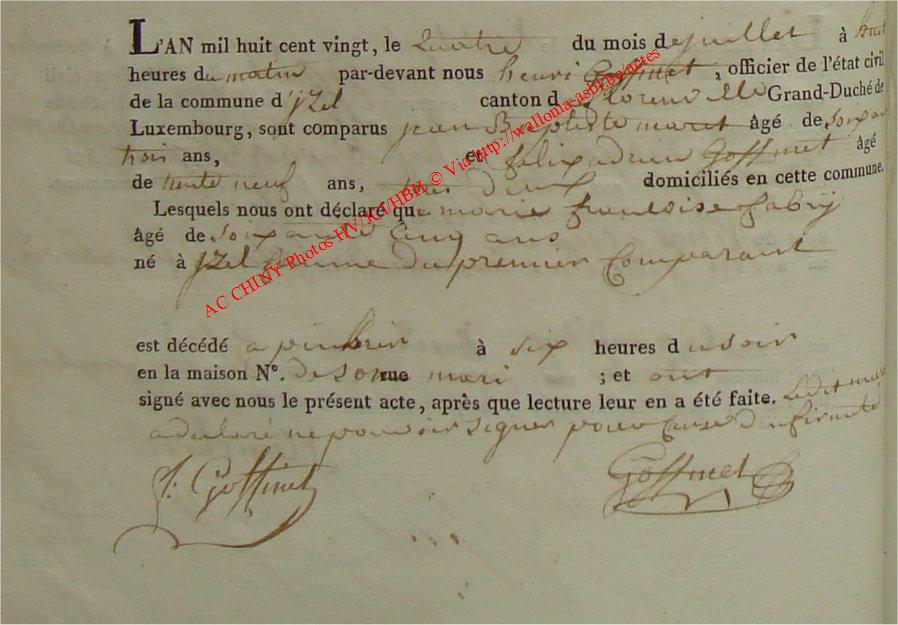 L'AN mil huit cent vingt, le quatre du mois de juillet à huit
heures du matin par-devant nous henri Goffinet, officier de l'état civil
de la commune d'jzel canton d florenville Grand-Duché de
Luxembourg, sont comparus jean Baptiste maret âgé de soixante
trois ans, et felix adrien Goffinet âgé
de trente neuf ans, domiciliés en cette commune.
Lesquels nous ont déclaré que marie francoise fabry
âgé de soixante cinq ans
né à jzel femme du premier Comparant
est décédé a pin hier à six heures du soir
en la maison Nº. de son rue mari ; et ont
signé avec nous le présent acte, après que lecture leur en a été faite. Ledit maret
a declaré ne pouvoir signer pour cause d'infirmité
f. Goffinet Goffinet
AC CHINY Photos HV/JCV/HBH © Via http://wallonia-asbl.be/actes